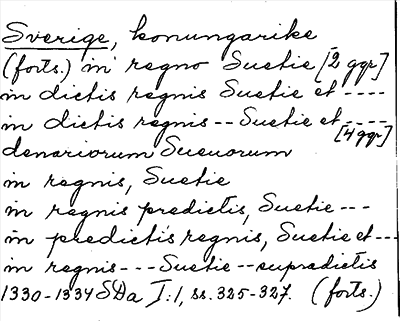 Sverige, konungarike
(forts.) in regno Suetie [2 ggr]
in dictis regnis Suetie et ----
in dictis regnis -- Suetie et -----
[4 ggr]
denariorum Sueuorum
in regnis, Suetie
in regnis predictis, Suetie ---
in predictis regnis, Suetie et ---
in regnis --- Suetie -- supradictis
1330-1334 SDa I:1, ss. 325-327. (forts.)